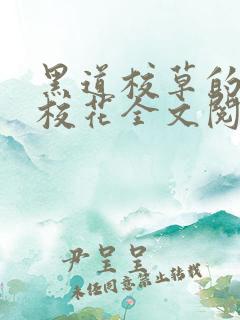 黑道校草的
校花全文阅
尹呈呈
未经同意禁止转载